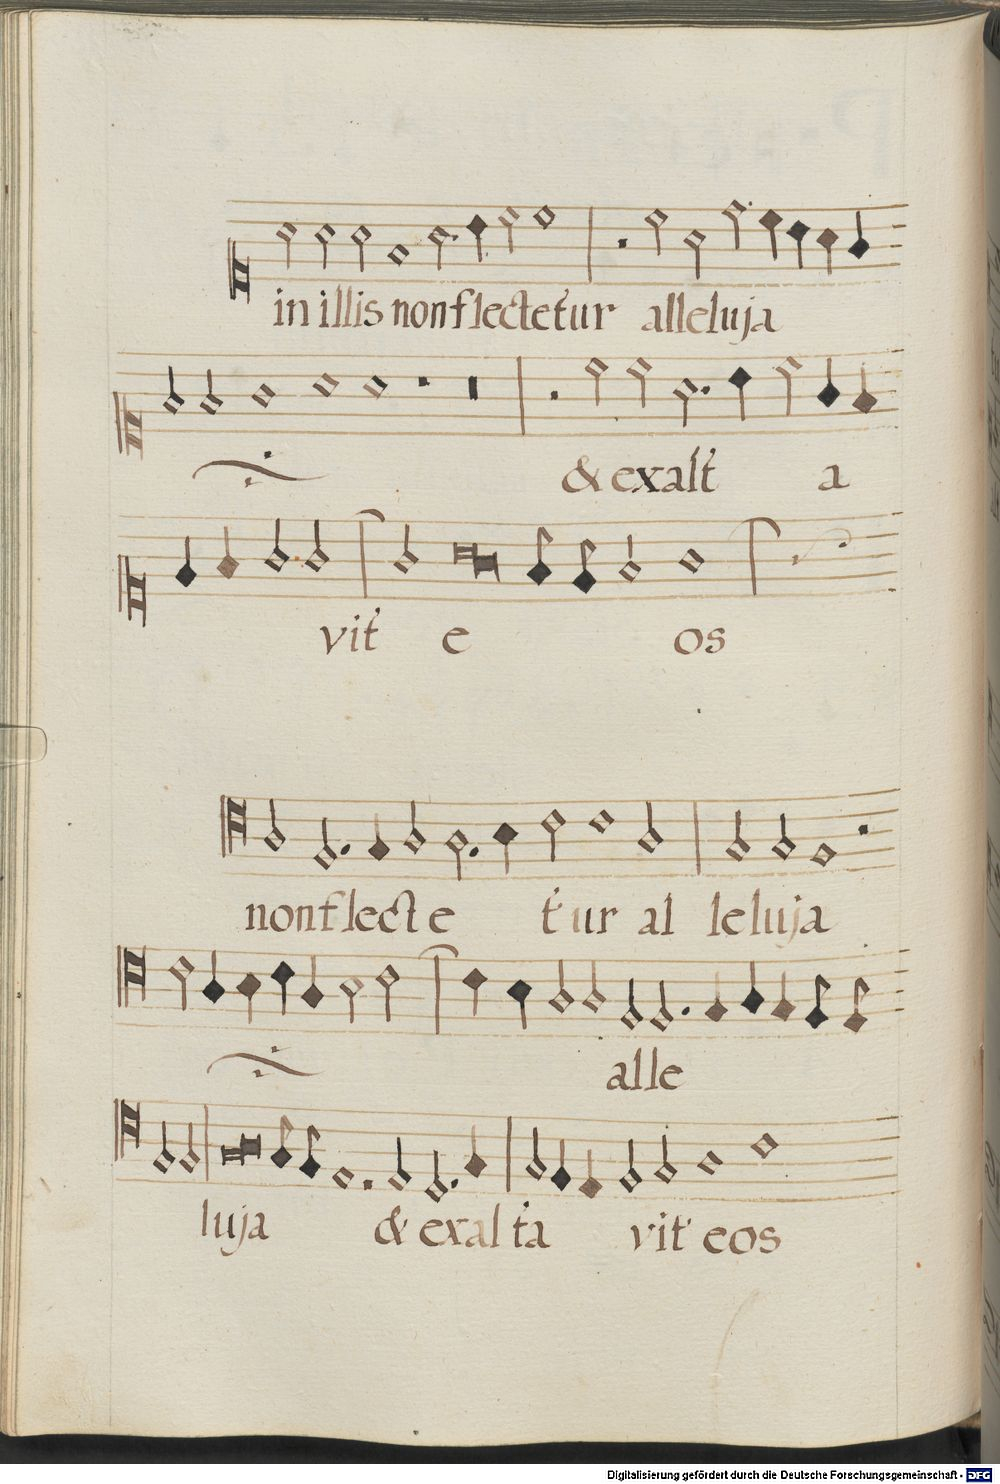 in illis non flectetur alleluja
& exalt a
vit e os
non flect e tur al leluja
alle
luja & exal ta vit eos
Digitalisierung gefördert durch die Deutsche Forschungsgemeinschaft - DFG